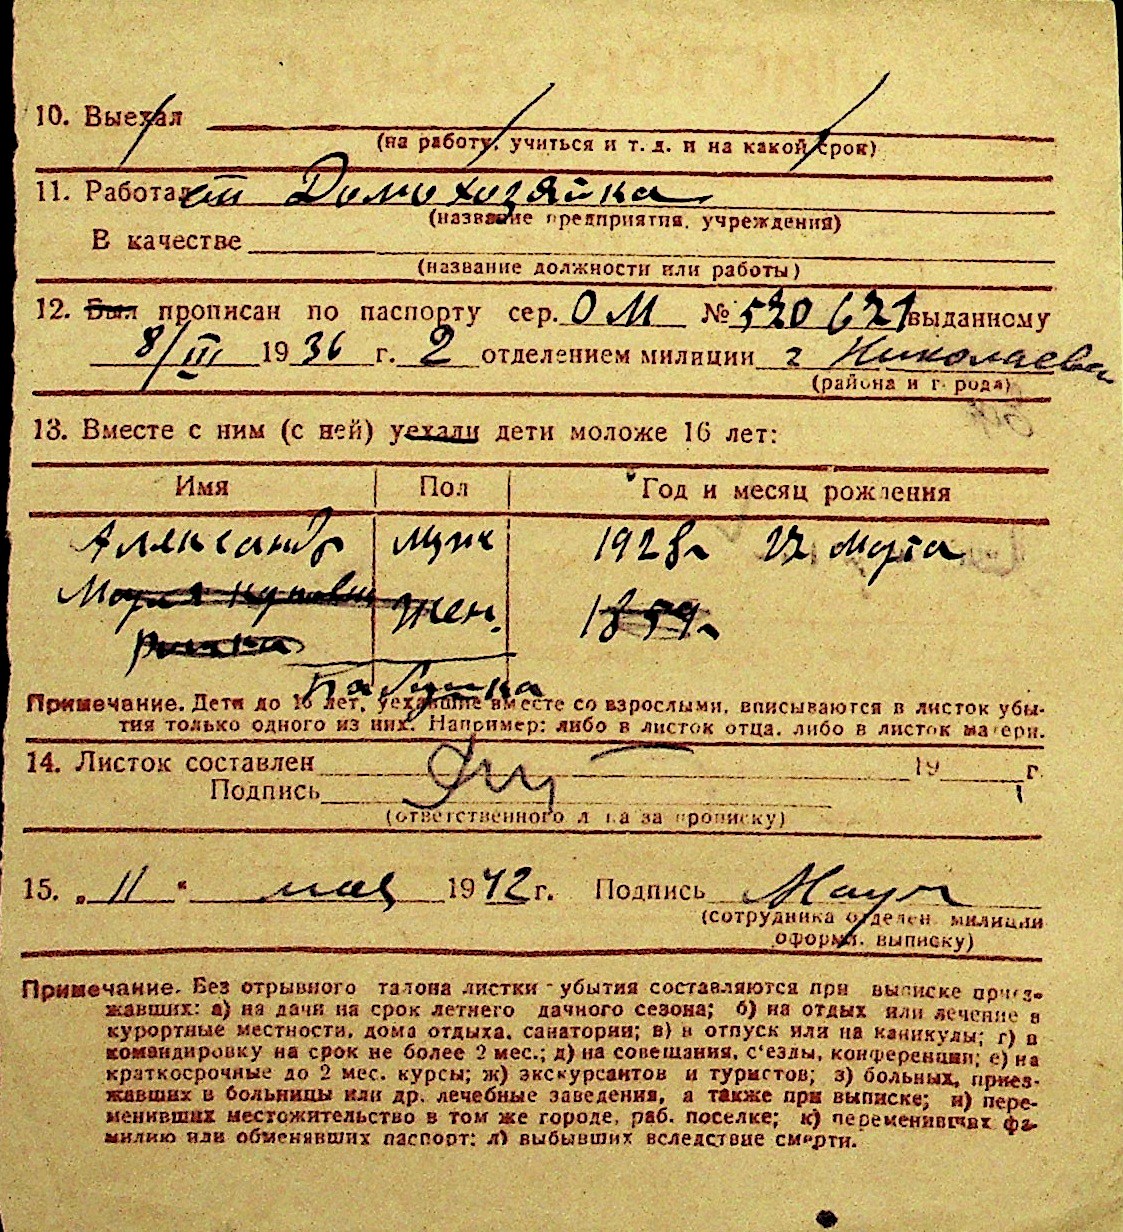 10. Выехал
(на работу, учиться и т. д. и на какой срок)
11. Работал Домохозяйка
(название предприятия, учреждения)
В качестве
(название должности или работы)
12. Был прописан по паспорту сер. ОМ № 520621 выданному
8/III 1936 г. 2 отделением милиции г Николаева
(района и города)
13. Вместе с ним (с ней) уехали дети моложе 16 лет:
Имя Пол Год и месяц рождения
Александр муж 1928г 22 марта
Мария жен. 1859г
Бабушка
Примечание. Дети до 16 лет, уехавшие вместе со взрослыми, вписываются в листок убы-
тия только одного из них. Например: либо в листок отца, либо в листок матери.
14. Листок составлен 19 г.
Подпись
(ответственного лица за прописку)
15. „ 11 " мая 1942 г. Подпись
(сотрудника отделен. милиции
оформ. выписку)
Примечание. Без отрывного талона листки убытия составляются при выписке приез-
жавших: а) на дачи на срок летнего дачного сезона; б) на отдых или лечение в
курортные местности, дома отдыха, санатории; в) в отпуск или на каникулы; г) в
командировку на срок не более 2 мес.; д) на совещания, с'езды, конференции; е) на
краткосрочные до 2 мес. курсы; ж) экскурсантов и туристов; з) больных, приез-
жавших в больницы или др. лечебные заведения, а также при выписке; и) пере-
менивших местожительство в том же городе, раб. поселке; к) переменивших фа-
милию или обменявших паспорт; л) выбывших вследствие смерти.